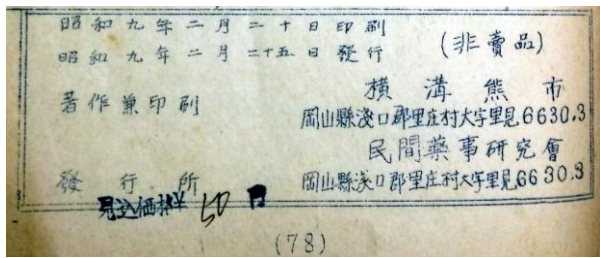 昭和九年二月二十日印刷
昭和九年二月二十五日發行
(非賣品)
著作兼印刷
橫溝熊市
岡山縣淺口郡里庄村大字里見6630.3
民間藥事研究會
發行所
岡山縣淺口郡里庄村大字里見6630.3
見込価格¥50円
(78)